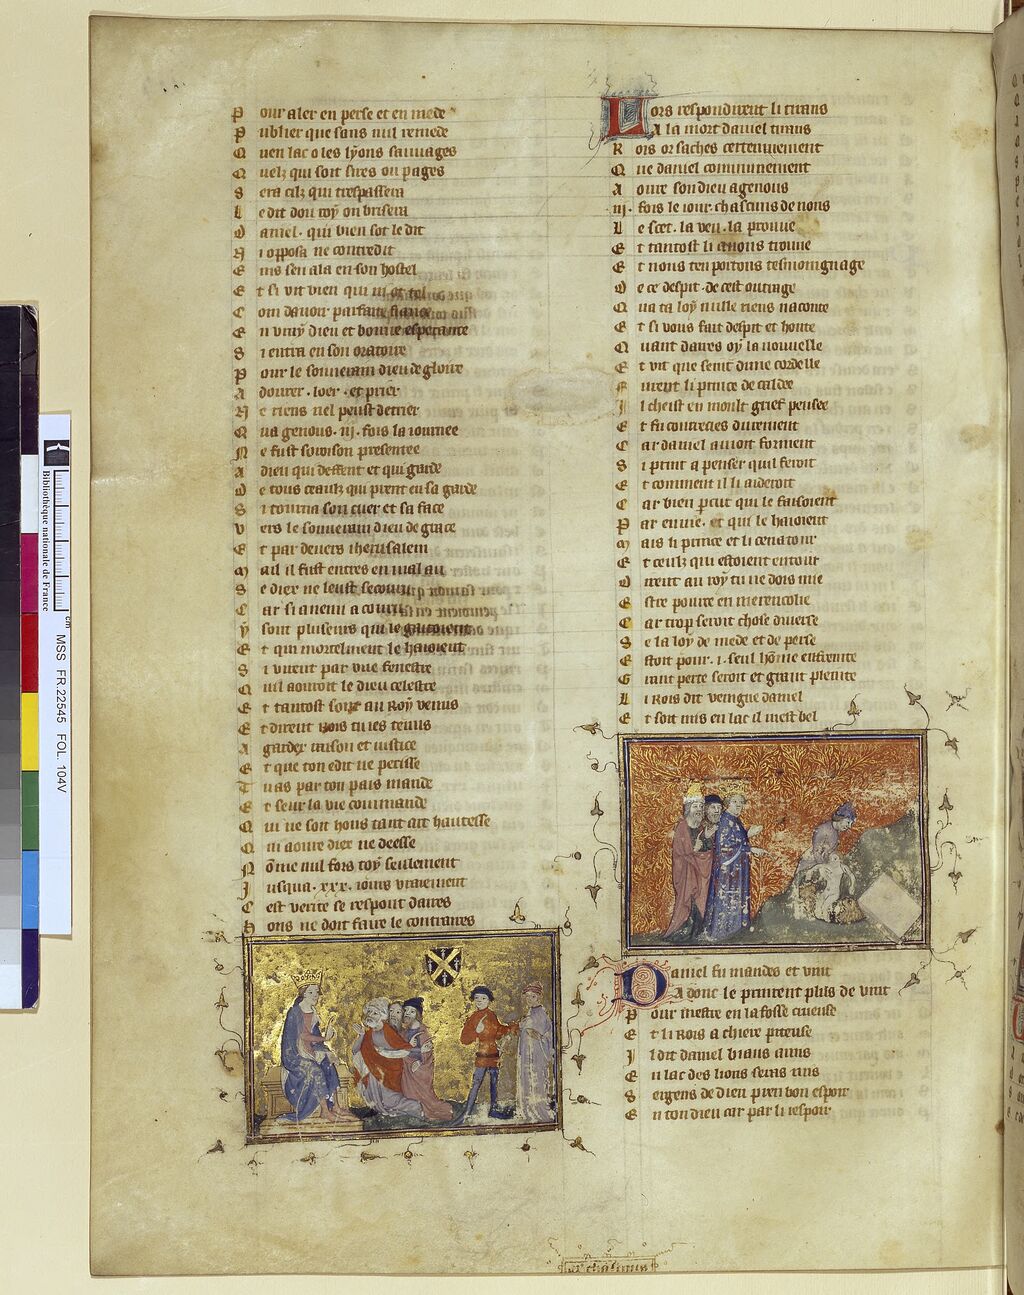 Pour aler en perse et en mede
Publier que sans nul remede
Quen lac o les lyons sauuages
Quelz qui soit sires ou pages
Sera cilz qui trespassera
Ledit dou roy ou brisera
Daniel. qui bien sot le dit
Ni opposa ne contredit
Eins sen ala en son hostel
Et si vit bien qui ni ot tel
Com dauoir parfaite fiance
En vray dieu et bonne esperance
Si entra en son oratoire
Pour le souuerain dieu de gloire
Adourer. loer. et prier
Ne riens nel peust detrier
Qua genous. iij. fois la iournee
Ne fust sorison presentee
A dieu qui deffent et qui garde
De tous ceaulz qui prent en sa garde
Si tourna son cuer et sa face
Vers le souuerain dieu de grace
Et par deuers iherusalem
Mail il fust entres en mal an
Se diex ne leust secouru
Car si anemi acouru
y sont pluseurs qui le gaitoient
Et qui mortelment le haioient
Si virent par vne fenestre
Quil aouroit le dieu celestre
Et tantost sont au Roy venus
Et dirent Rois tu ies tenus
A garder raison et iustice
Et que ton edit ne perisse
Tu as par ton pais mande
Et seur la vie commande
Qui ne soit hons tant ait hautesse
Qui aoure diex ne deesse
Nomme nul fors toy seulement
Jusqua. xxx. iours vraiement
Cest verite se respont daires
Hons ne doit faire le contraires
Lors respondirent li tirans
A la mort daniel tirans
Rois or saches certeinnement
Que daniel communnement
Aoure son dieu a genous
iij. fois le iour. chascuns de nous
Le scet. la veu. la prouue
Et tantost li auons trouue
Et nous ten portons tesmoingnage
De ce despit. de cest outrage
Qua ta loy nulle riens naconte
Et si vous fait despit et honte
Quant daires oy la nouuelle
Et vit que senit dune cordelle
Furent li prince de caldee
Il cheist en moult grief pensee
Et fu contrecies durement
Car daniel amoit forment
Si prist a penser quil feroit
Et comment il li aideroit
Car bien percut qui le faisoient
Par enuie. et qui le haioient
Mais li prince et li cenatour
Et ceulz qui estoient entour
Dirent au roy tu ne dois mie
Estre pour ce en merencolie
Car trop seroit chose diuerse
Se la loy de mede et de perse
Estoit pour. i. seul home enfrainte
Grant perte seroit et grant pleinte
Li Rois dit veingne daniel
Et soit mis en lac il mest bel
Daniel fu mandes et vint
Adonc le prirent plus de vint
Pour mettre en la fosse crueuse
Et li Rois a chiere piteuse
Il dit daniel biaus amis
En lac des lions seras mis
Sergens de dieu pren bon espoir
En ton dieu car par li iespoir
Bibliothèque nationale de France
cm
MSS FR.22545 FOL. 104V